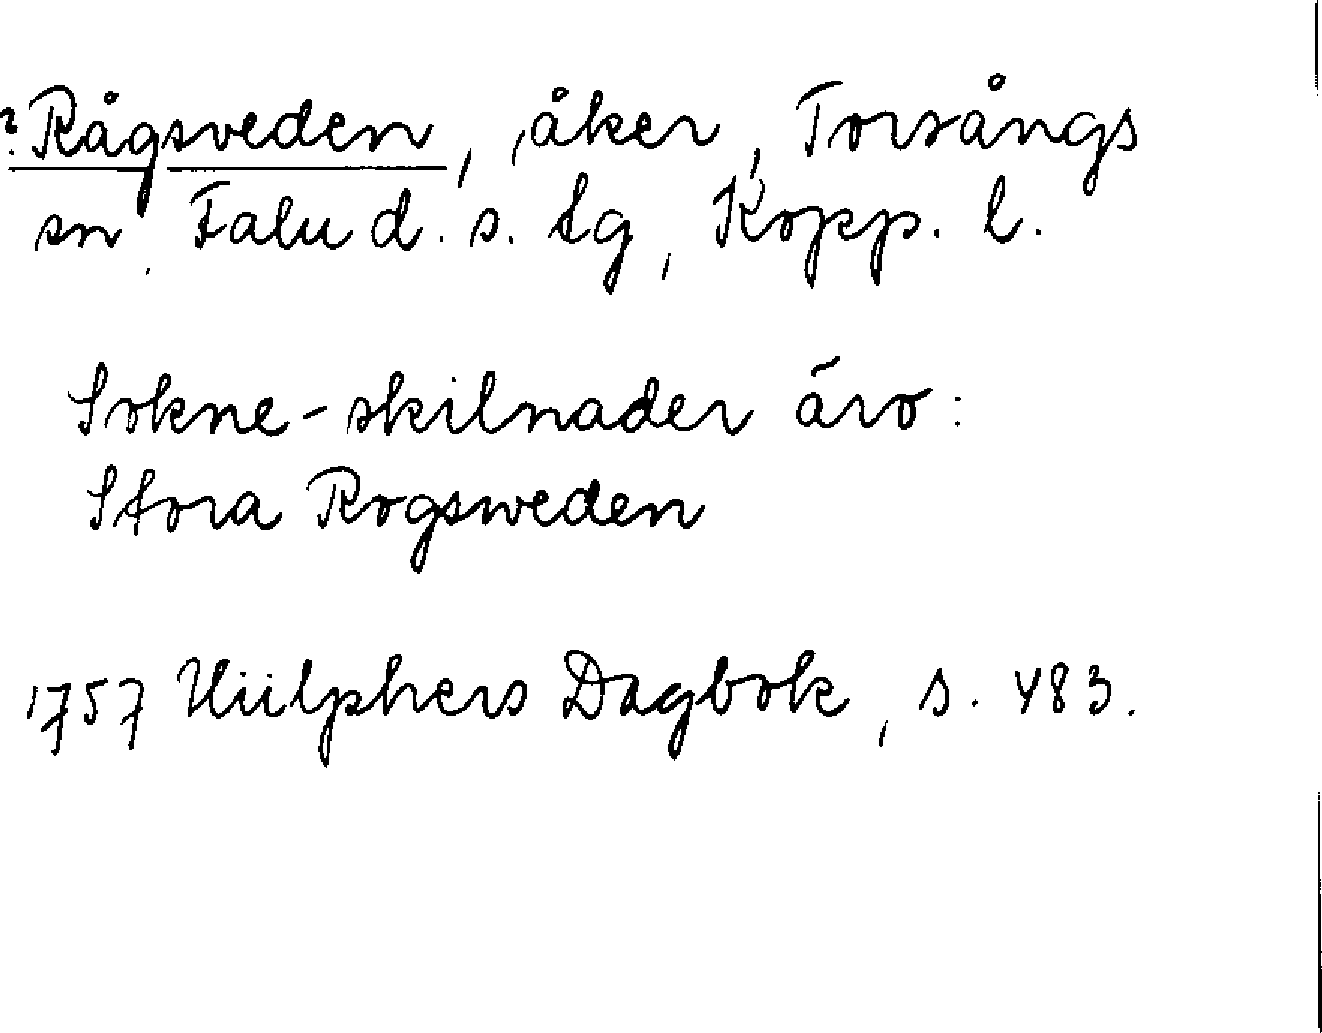 ? Rågsveden, åker, Torsångs
sn, Falu d. s. tg, Kopp. l.
Sokne-skilnader äro:
Stora Rogsweden
1757 Hülphers Dagbok, s. 483.